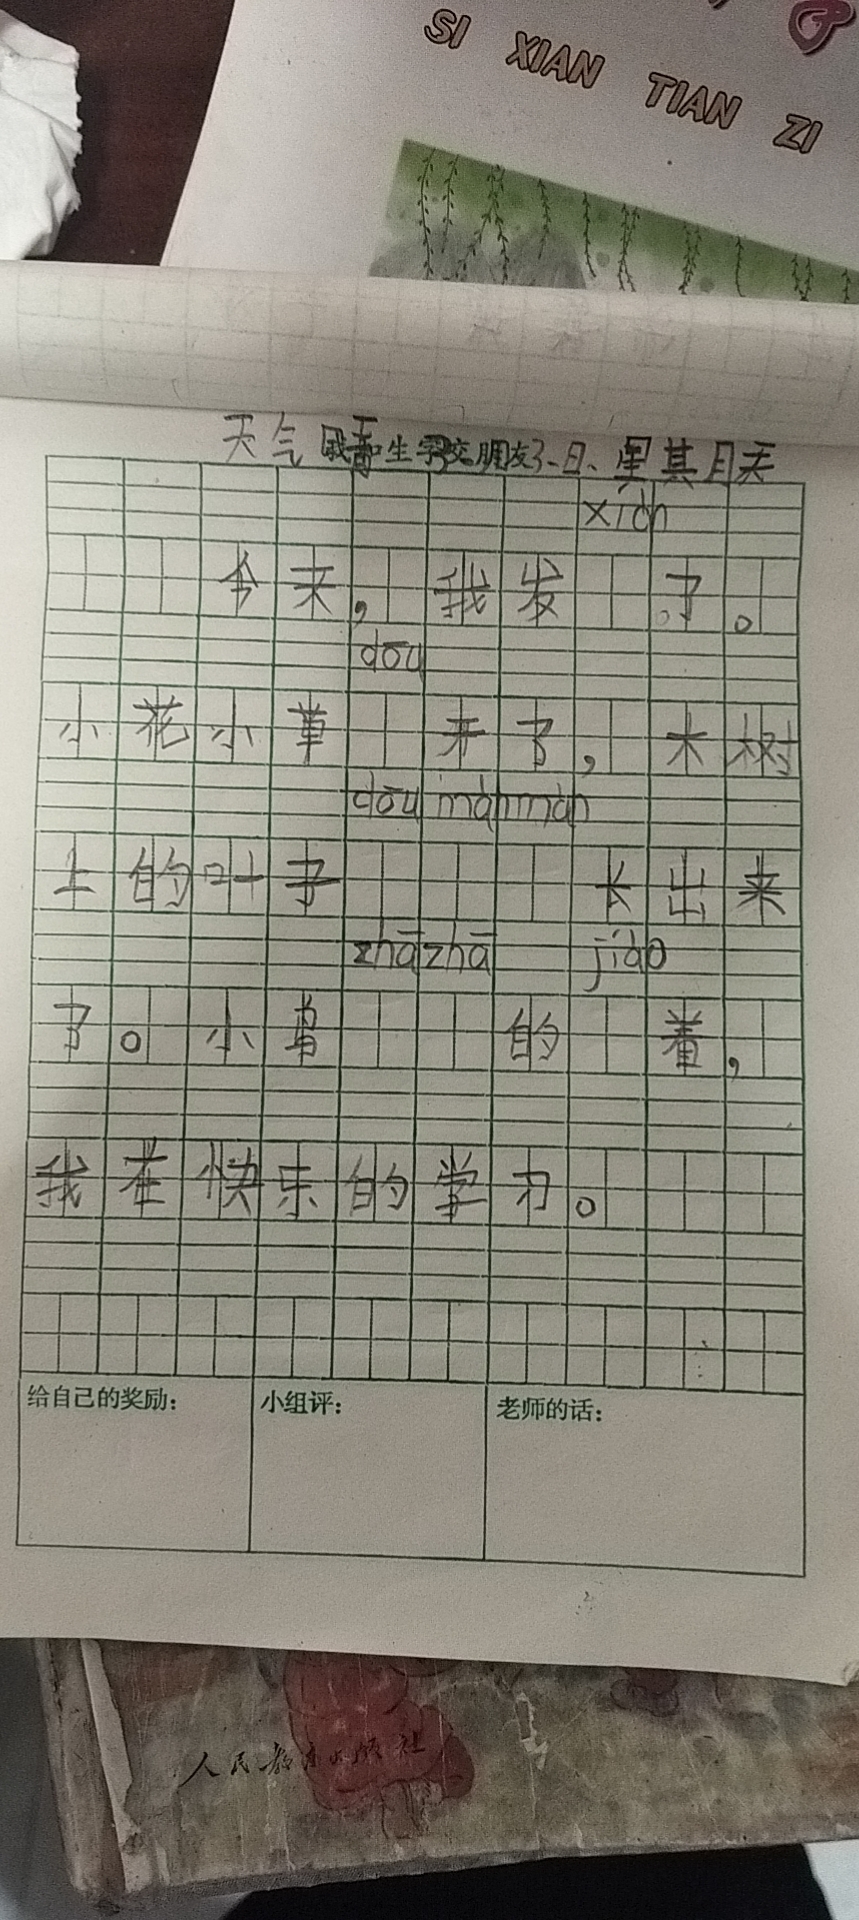 SI XIAN TIAN ZI
天气 晴 3 日 星其月天
我和生字交朋友
xiàn
今天,我发 了。
dōu
小花小草 开了,大树
dōu mànmàn
上的叶子 长出来
zhāzhā jiào
了。小鸟 的 着,
我在快乐的学习。
给自己的奖励: 小组评: 老师的话:
人民教育出版社